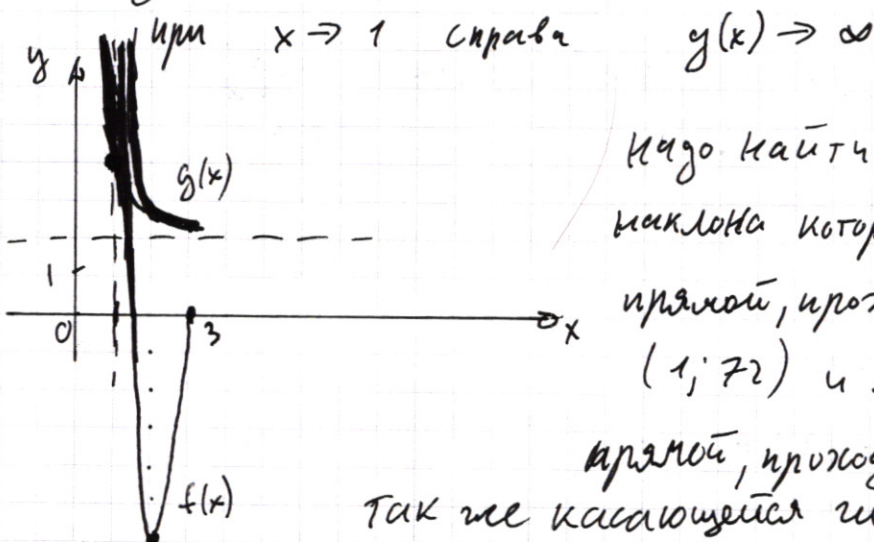 при x → 1 справа g(x) → ∞
y
g(x)
надо найти
наклона котор
1
0 3 x
прямой, прох
(1; 72) и
прямой, проход
f(x)
так же касающейся ги